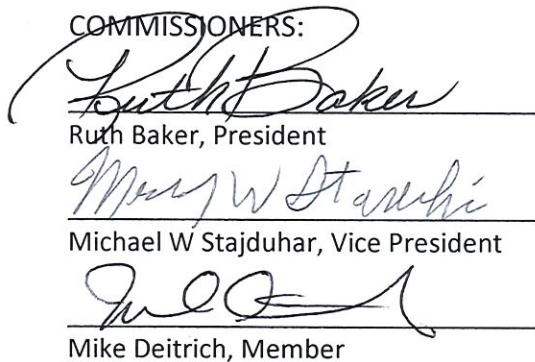 COMMISSIONERS:
Ruth Baker
Ruth Baker, President
W
Michael W Stajduhar, Vice President
Mike Deitrich, Member